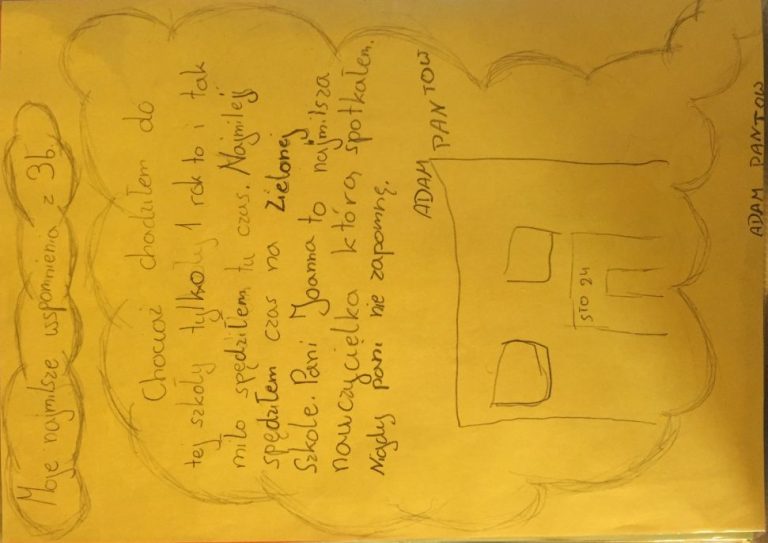 Moje najmilsze wspomnienia z 3b.
Chociaż chodziłem do
tej szkoły tylko 1 rok to i tak
miło spędziłem tu czas. Najmilej
spędziłem czas na Zielonej
Szkole. Pani Joanna to najmilsza
nauczycielka którą spotkałem.
Nigdy pani nie zapomnę.
ADAM PANTOW
STO 24
ADAM PANTOW